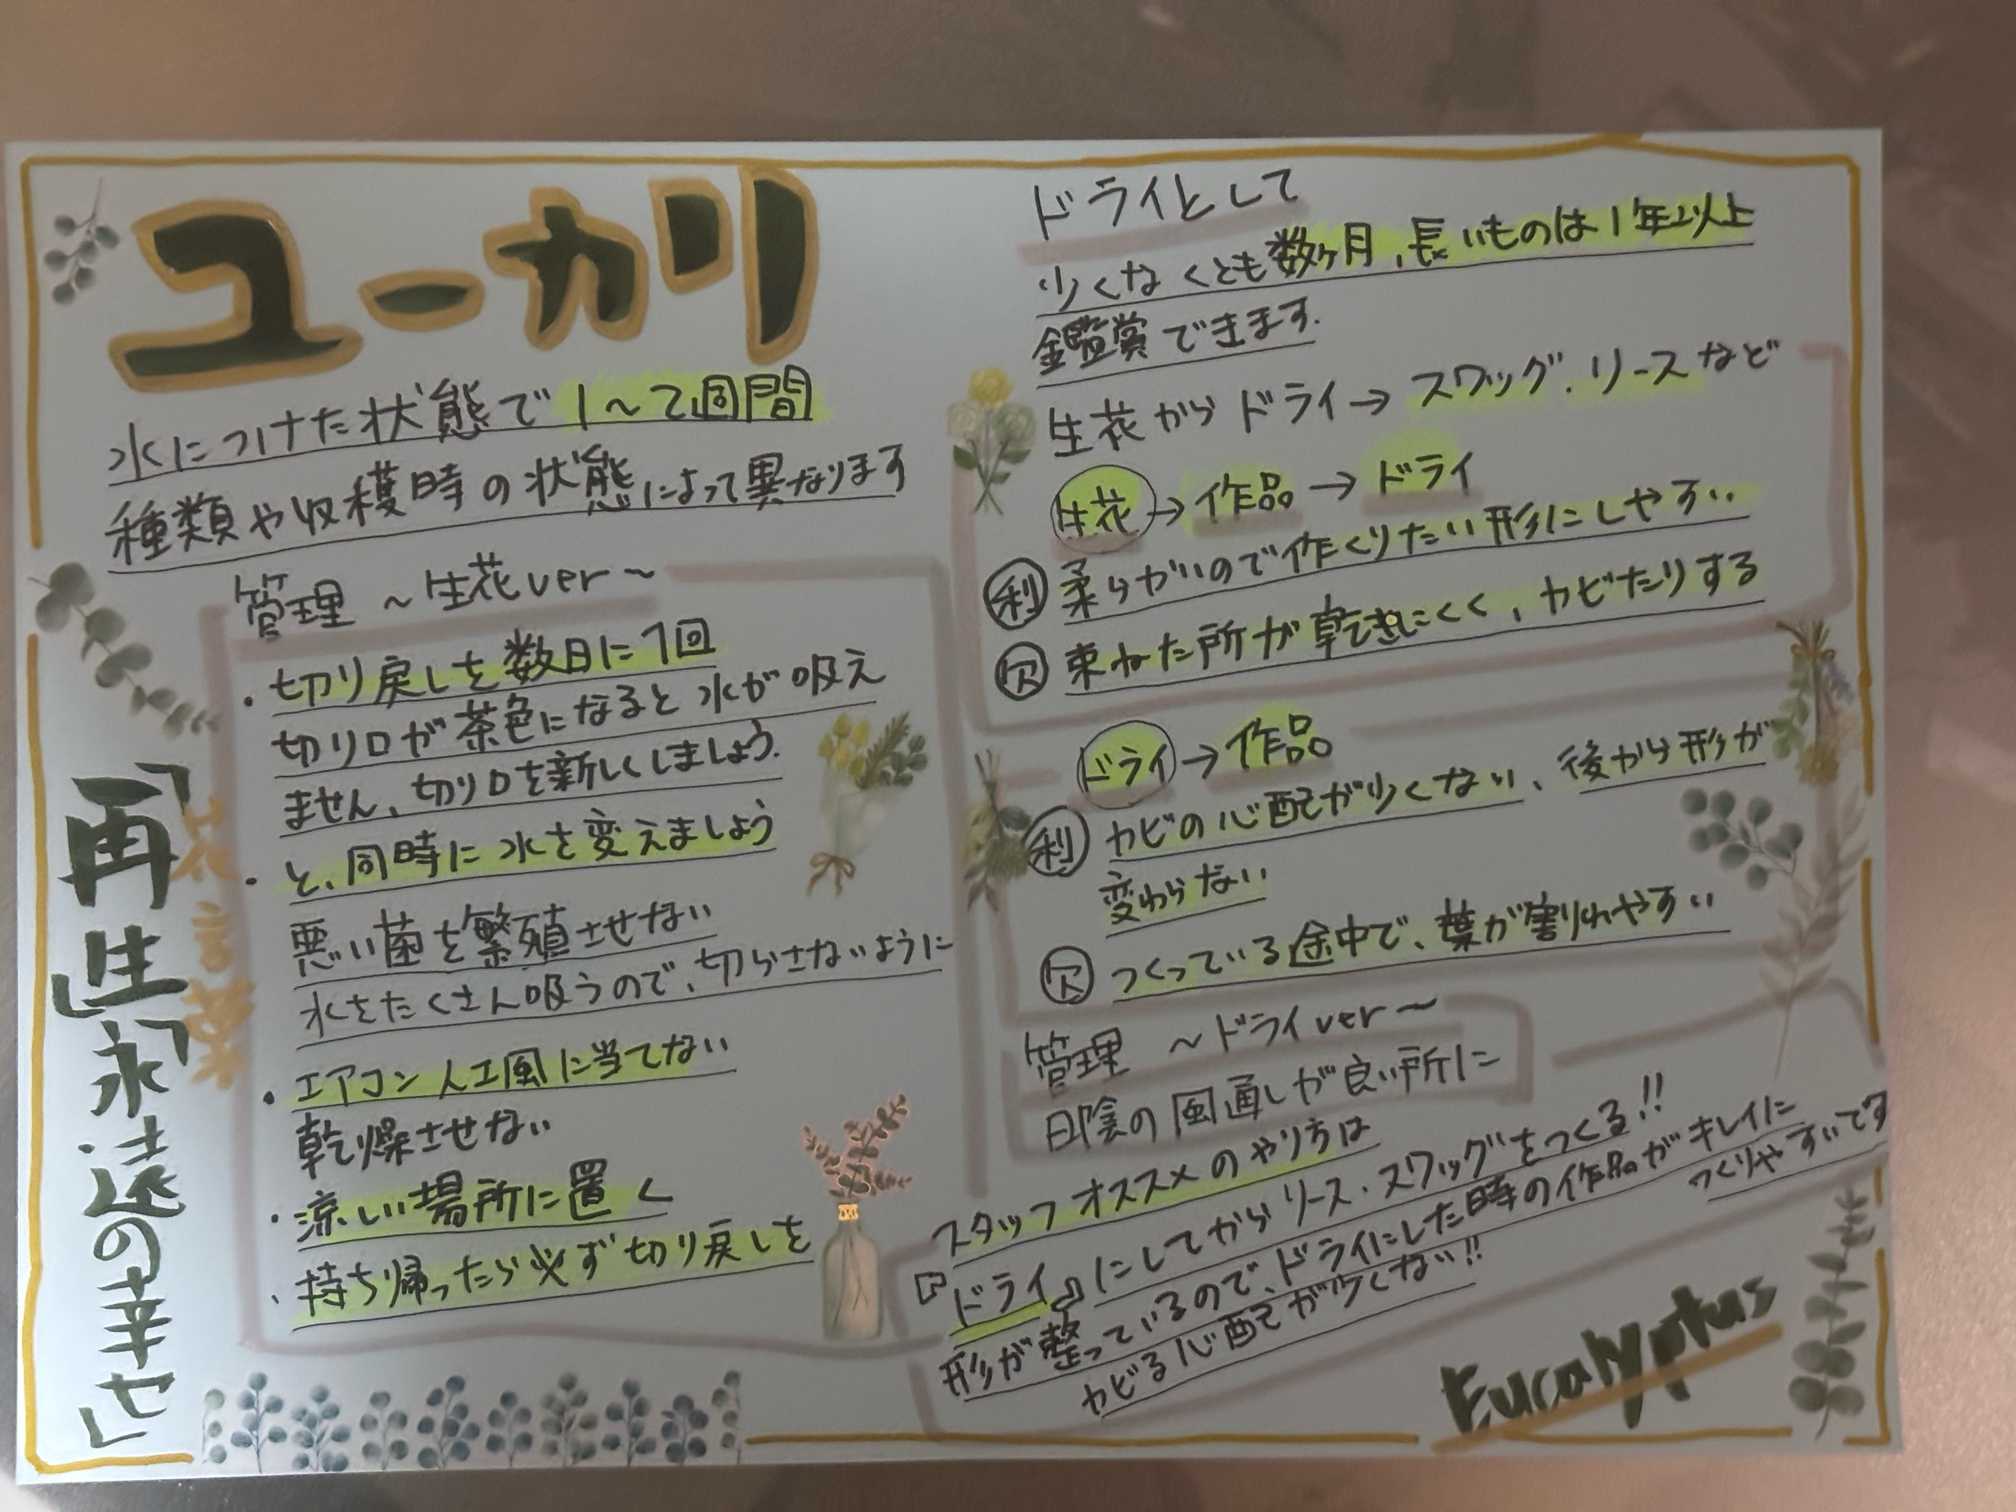 ユーカリ
水につけた状態で1～2週間
種類や収穫時の状態によって異なります
管理 ～生花ver～
・切り戻しを数日に1回
切り口が茶色になると水が吸え
ません、切り口を新しくしましょう.
・と、同時に水を変えましょう
悪い菌を繁殖させない
水をたくさん吸うので、切らさないように
・エアコン人工風に当てない
乾燥させない
・涼しい場所に置く
・持ち帰ったら必ず切り戻しを
花言葉
「再生」「永遠の幸せ」
ドライとして
少くなくとも数ヶ月、長いものは1年以上
鑑賞できます.
生花からドライ→スワッグ.リースなど
生花→作品→ドライ
利 柔らかいので作くりたい形にしやすい
欠 束ねた所が乾きにくく、カビたりする
ドライ→作品
利 カビの心配が少くない、後から形が
変わらない
欠 つくっている途中で、葉が割れやすい
管理 ～ドライver～
日陰の風通しが良い所に
スタッフオススメのやり方は
『ドライ』にしてからリース・スワッグをつくる!!
形が整っているので、ドライにした時の作品がキレイに
つくりやすいです
カビる心配が少くない!!
Eucalyptus